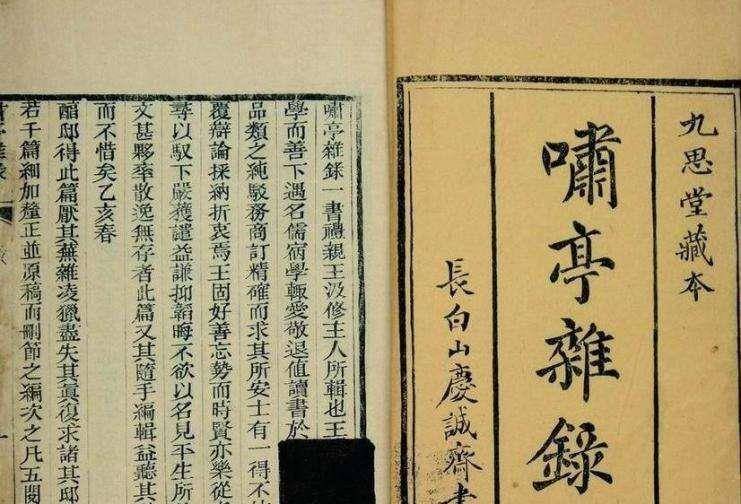 九思堂藏本
嘯亭雜錄
長白山慶誠齋書
嘯亭雜錄一書禮親王汲修主人所輯也王
學而善下遇名儒宿學輒愛敬退値讀書於
品類之純駁務商訂精確而求其所安士有一得不
覆辯論採納折衷焉王固好善忘勢而時賢亦樂從
尋以馭下嚴獲譴益謙抑韜晦不欲以名見平生所
文甚夥率散逸無存者此篇又其隨手編輯益聽其
而不惜矣乙亥春
醕邸得此篇厭其蕪雜凌獵盡失其眞復求諸其邸
若干篇細加釐正並原稿而刪節之編次之凡五閱